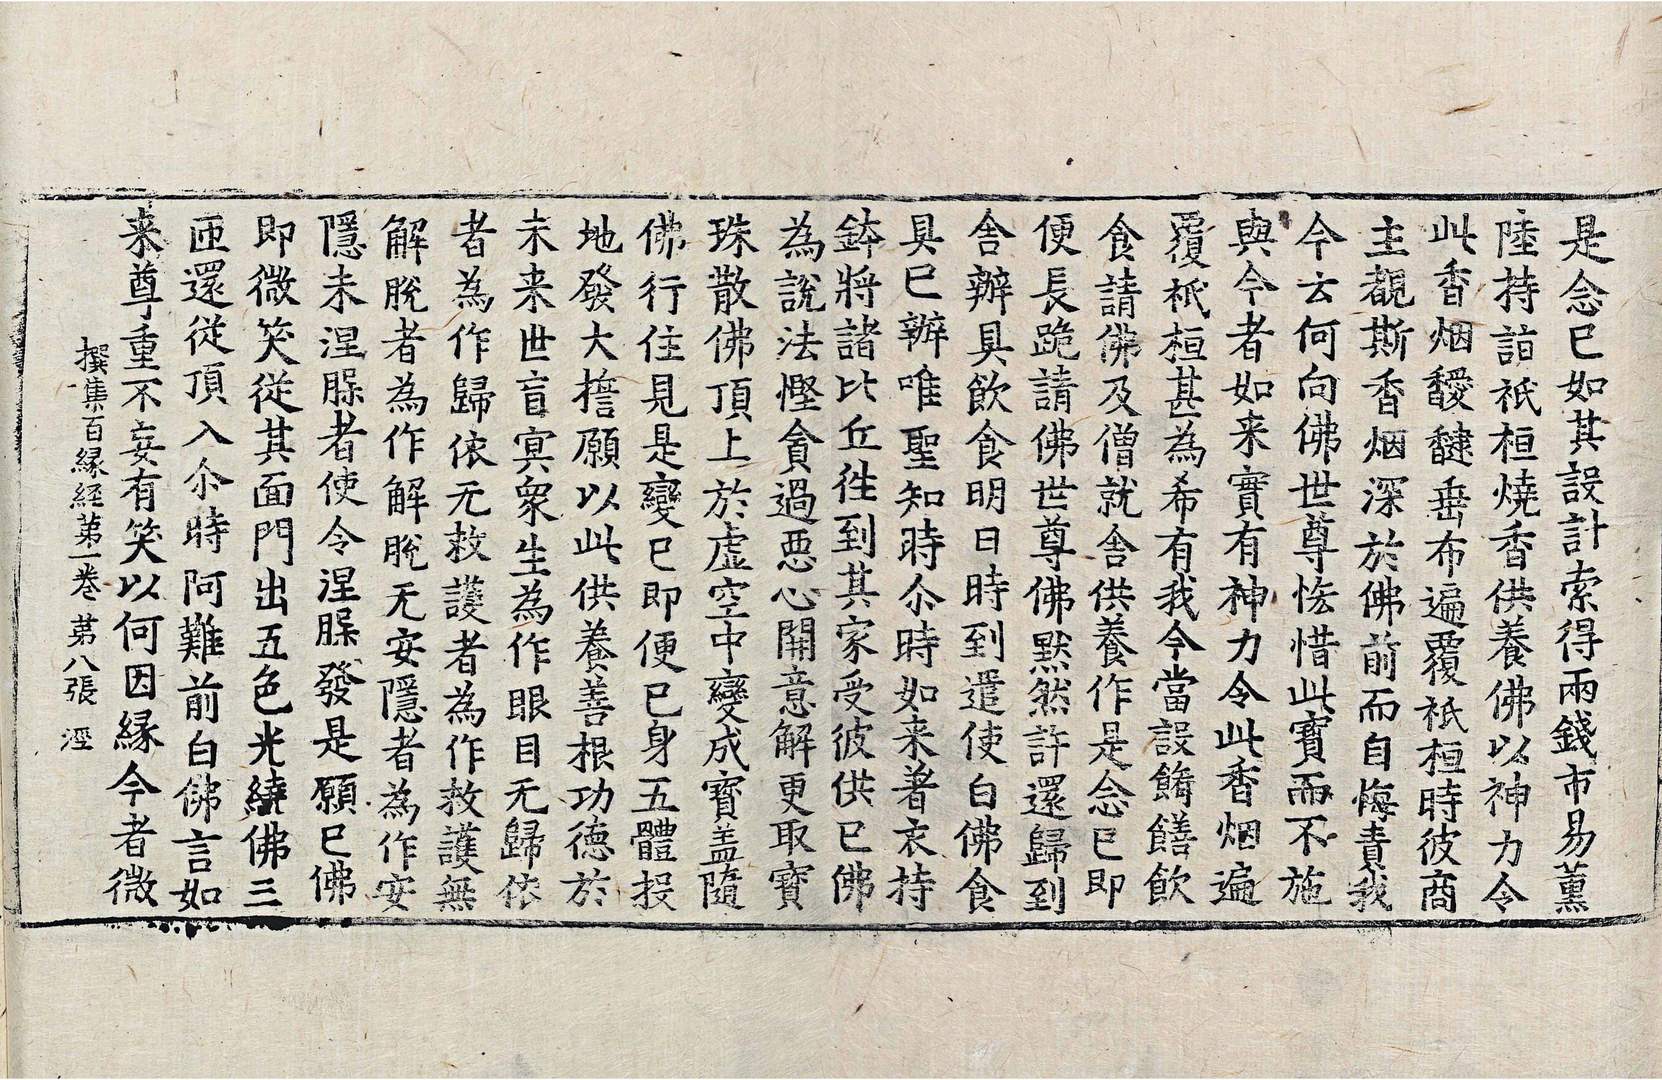 是念已如其設計索得兩錢市易薰
陸持詣祇桓燒香供養佛以神力令
此香烟靉靆垂布遍覆祇桓時彼商
主覩斯香烟深於佛前而自悔責我
今云何向佛世尊悋惜此寶而不施
與今者如来實有神力令此香烟遍
覆祇桓甚為希有我今當設餚饍飲
食請佛及僧就舍供養作是念已即
便長跪請佛世尊佛默然許還歸到
舍辦具飲食明日時到遣使白佛食
具已辦唯聖知時尒時如来著衣持
鉢將諸比丘徃到其家受彼供已佛
為說法慳貪過惡心開意解更取寶
珠散佛頂上於虛空中變成寶盖隨
佛行住見是變已即便已身五體投
地發大擔願以此供養善根功德於
未来世盲㝠衆生為作眼目无歸依
者為作歸依无救護者為作救護無
解脫者為作解脫无安隱者為作安
隱未涅槃者使令涅槃發是願已佛
即微笑從其面門出五色光繞佛三
匝還從頂入尒時阿難前白佛言如
来尊重不妄有笑以何因縁今者微
撰集百縁経第一卷 第八張 淫